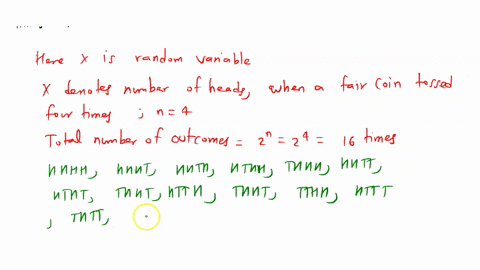 Here X is random variable
X denotes number of heads, when a fair coin tossed
four times ; n = 4
Total number of outcomes = 2^n = 2^4 = 16 times
HHHH, HHHT, HHTH, HTHH, THHH, HHTT,
HTHT, THHT, HTTH, THHT, TTHH, HTTT
, THTT,